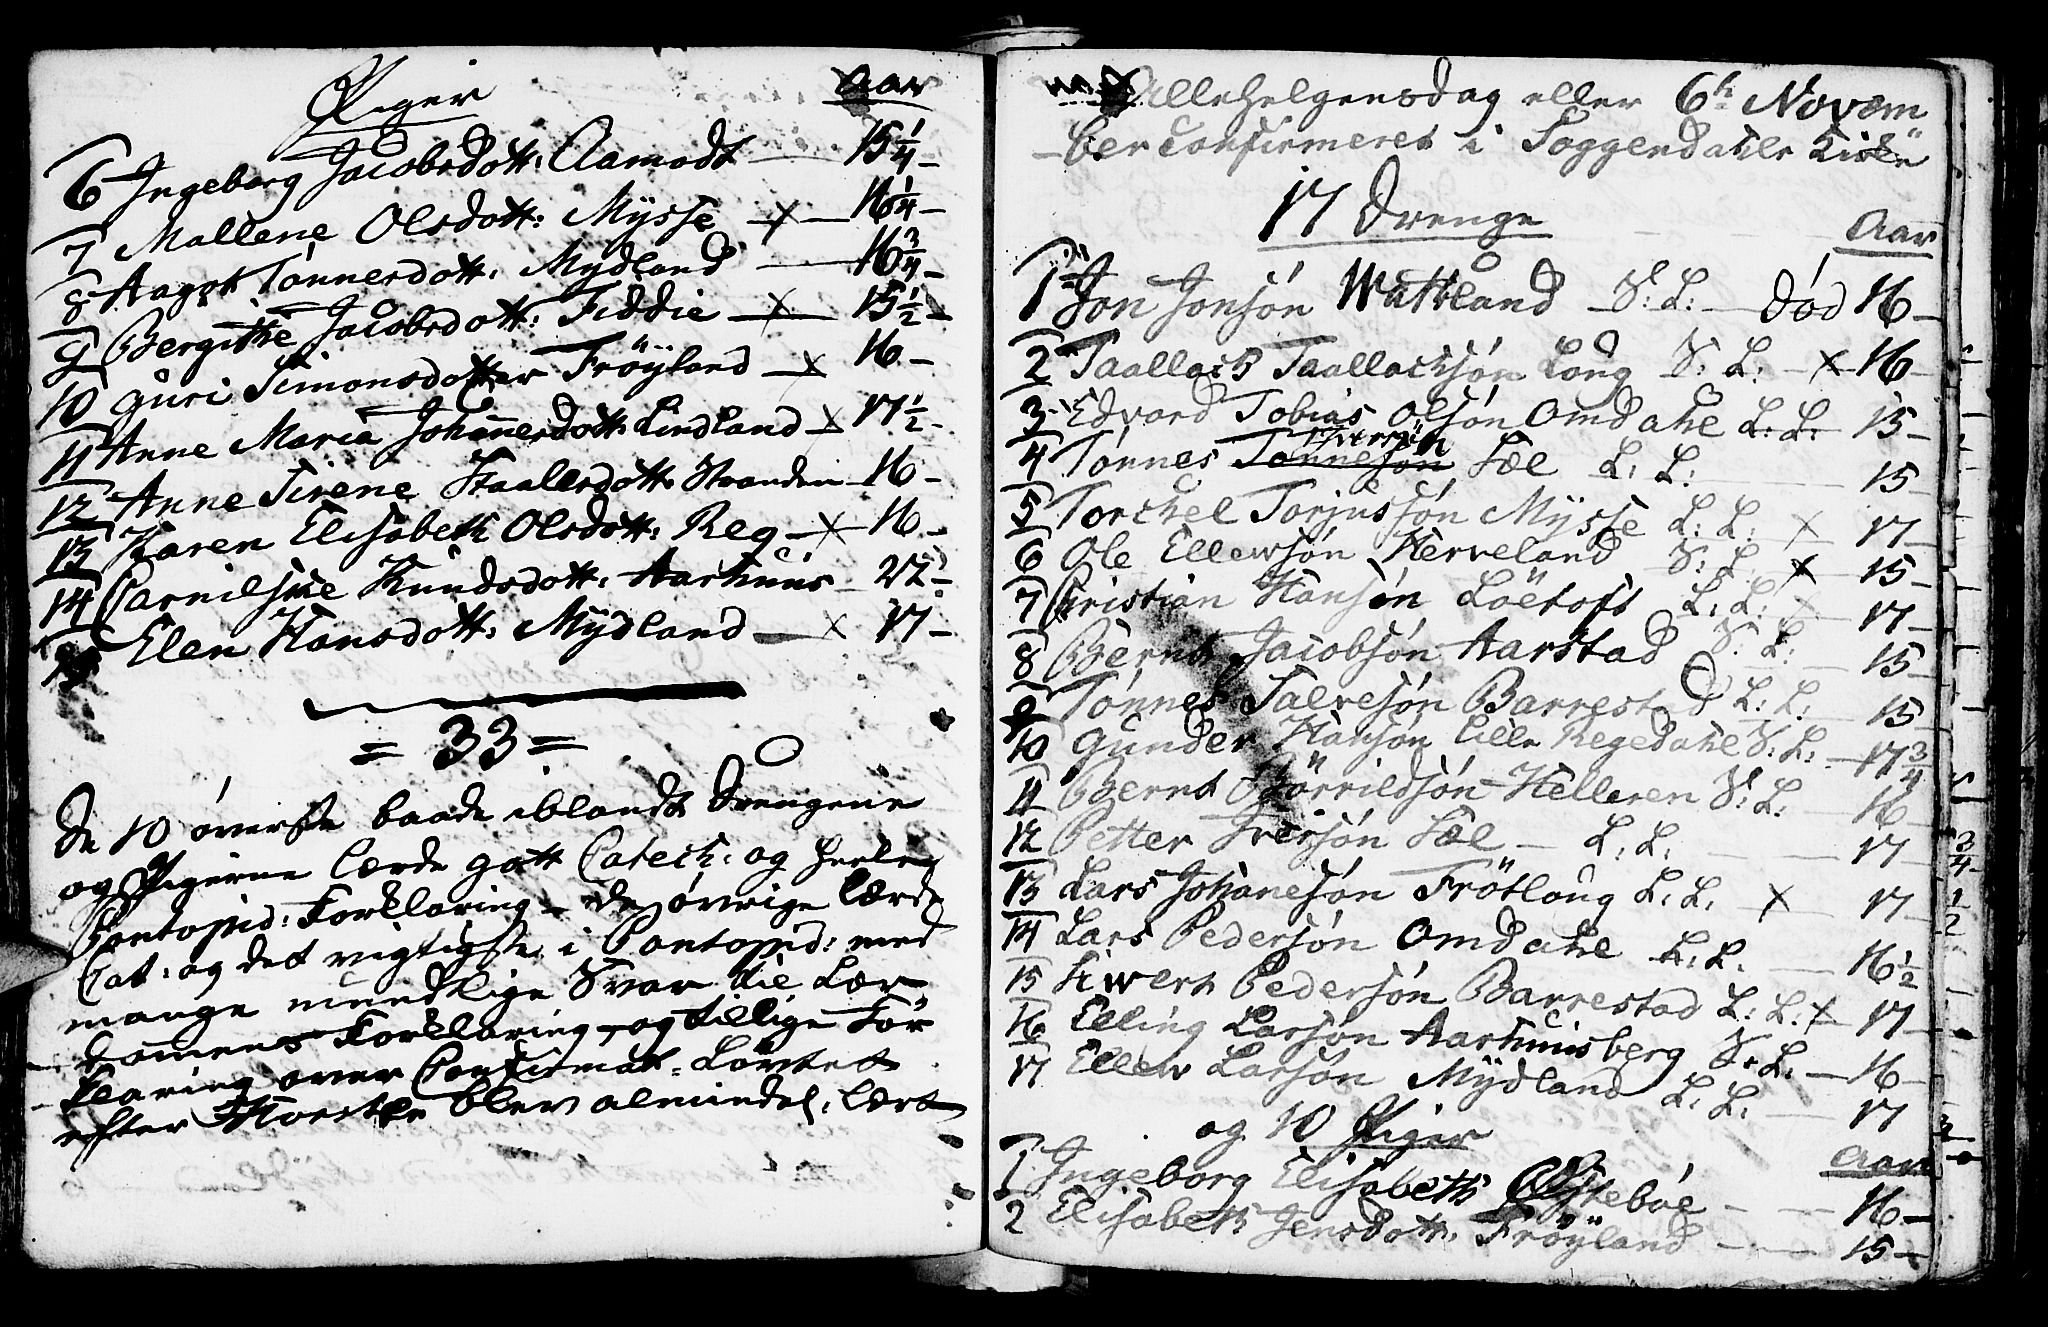 Piger Aar
6 Ingeborg Jacobsdott: Aamodt — 15 1/4 —
7 Mallene Olsdott: Mysse — x — 16 1/4 —
8 Aagot Tønnesdott: Mydland — 16 3/4 —
9 Bergithe Jacobsdott: Fiddie — x — 15 1/2 —
10 Guri Simonsdotter Frøÿland — x 16 —
11 Anne Maria Johannesdott: Lindland — x 17 1/2 —
12 Anne Sirene Staalesdott: Stranden — 16 —
13 Karen Elisabeth Olsdott: Reg — x — 16 —
14 Carnilsine Knudsdott: Aarhuus — 22 1/2
15 Elen Hansdott: Mydland — x 17 —
= 33 =
de 10 øverste baade iblandt Drengene
og Pigerne lærde gott Catech: og heele
Pontopid: Forklaring — de øvrige lærde
Cat: og det vigtigste i Pontopid: med
mange mundtlige Svar til Lær-
domens Forklaring, og tillige For
klaring over Confirmat: Løvtet
efter blev almindel: lært
Allehelgensdag eller 6te Novem
ber confirmeret i Soggendahls Kirke
17 Drenge
Aar
1 Jon Jonsøn Wattland S: L: — død 16 —
2 Taallach Taallachsøn Long S: L: — x 16 —
3 Edvard Tobias Olsøn Omdahl L: L: 15 —
4 Tønnes Tønnesøn Iversøn Sæl L: L: 15 —
5 Torchel Torjussøn Mysse L: L: x 17 —
6 Ole Ellewsøn Herveland S: L: x 15 —
7 Christian Hansøn Løetoft L: L: x 17 —
8 Bernt Jacobsøn Aarstad S: L: — 15 —
9 Tønnes Salvesøn Barrestad L: L: 15
10 Gunder Hansøn Lille Regedahl S: L: — 17 3/4
11 Bernt Hellern S: L: 16 —
12 Petter Iversøn Sæl — L: L: 17 —
13 Lars Johanesøn Frøtloug L: L: x 17 —
14 Lars Pedersøn Omdahl L: L: — 16 1/2
15 Siwert Pedersøn Barrestad L: L: x 17 —
16 Elling Larsøn Aarhuusberg S: L: — 16 —
17 Ellew Larsøn Mydland L: L: — 17
og 10 Piger
Aar
1 Ingeborg Elisabeth — 16 —
2 Elisabeth Jensdott: Frøÿland — 15 —